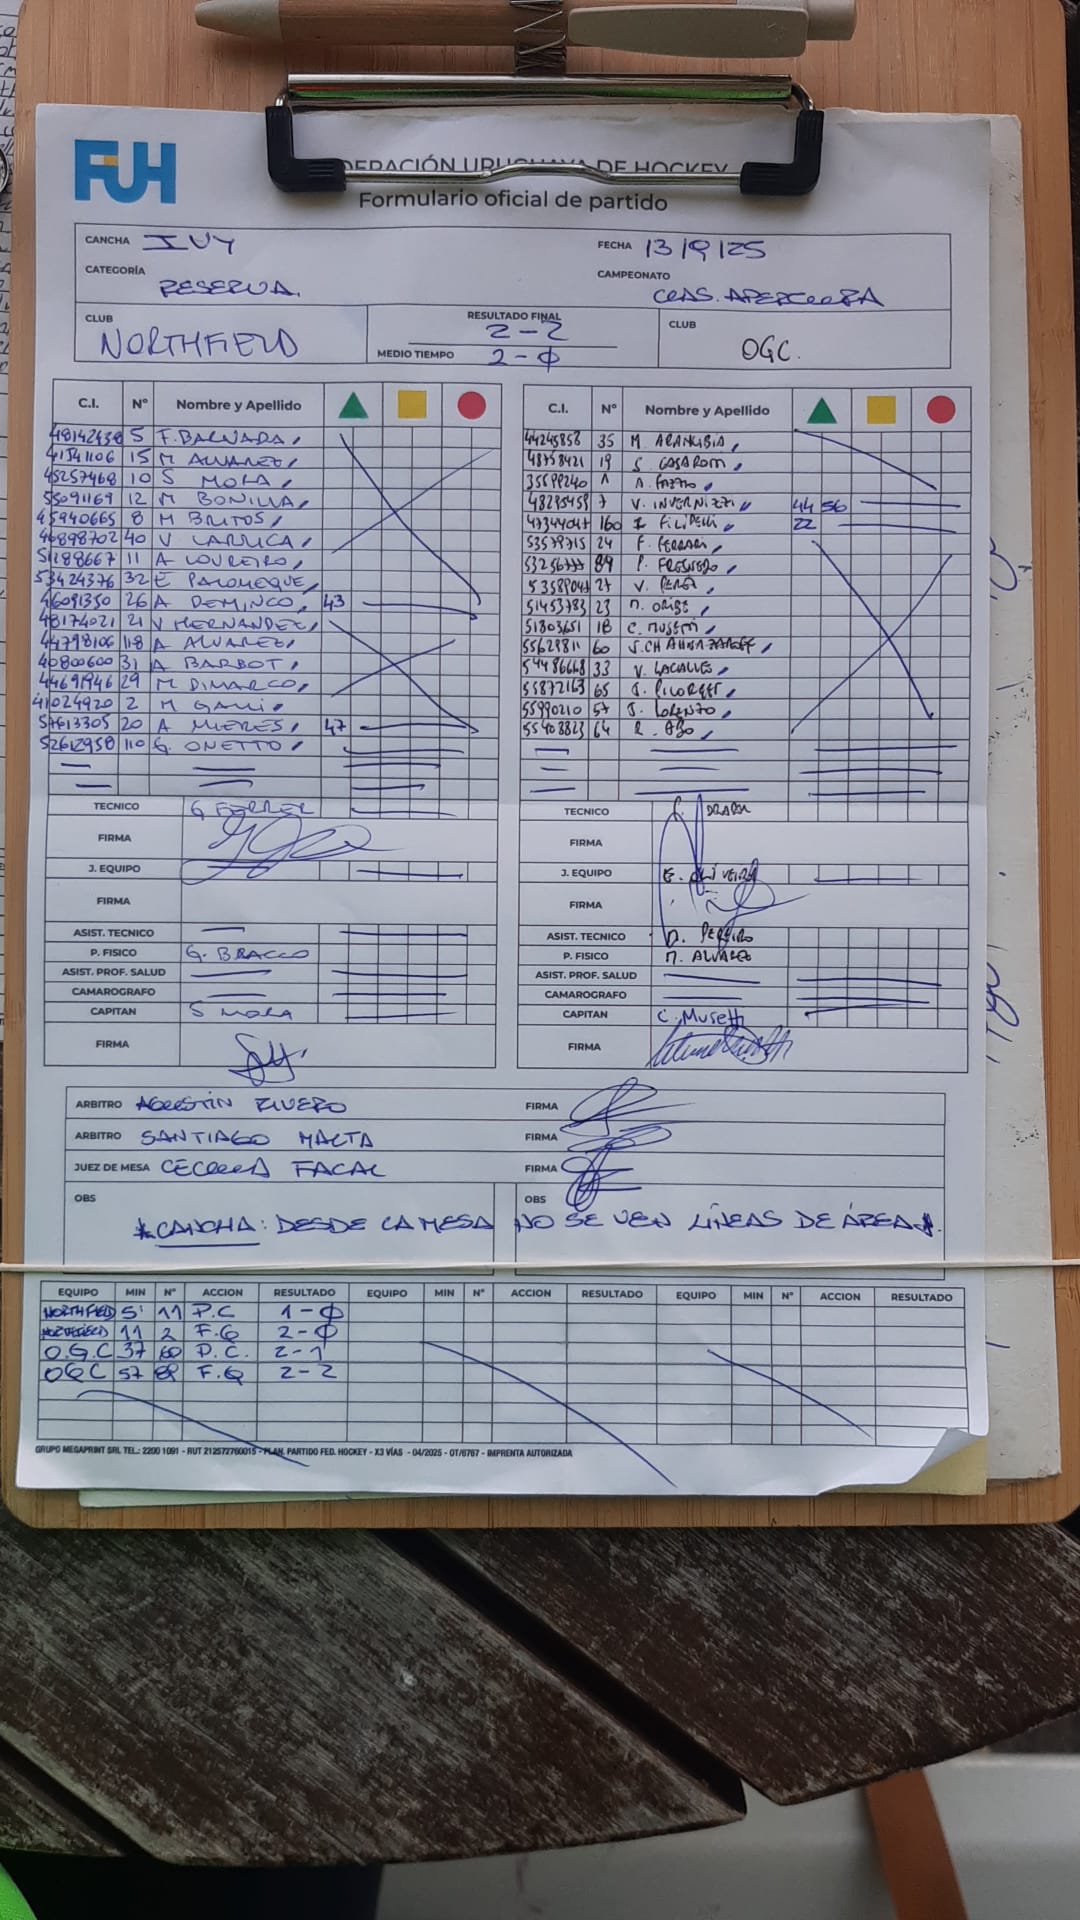 FUH
FEDERACIÓN URUGUAYA DE HOCKEY
Formulario oficial de partido
CANCHA IVY FECHA 13/9/25
CATEGORÍA RESERVA. CAMPEONATO CLAS. APERTURA
CLUB NORTHFIELD RESULTADO FINAL 2-2 CLUB OGC.
MEDIO TIEMPO 2-0
C.I. N° Nombre y Apellido
48142438 5 F. BARNADA
41541106 15 M ALVAREZ
45257468 10 S MORA
55091169 12 M BONILLA
45940665 8 M BRITOS
46898702 40 V LARRICA
51288667 11 A LOUREIRO
53424376 32 E PALOMEQUE
46091350 26 A DEMINCO 43
48174021 21 V HERNANDEZ
44798106 118 A ALVAREZ
40800600 31 A BARBOT
44691946 29 M DIMARCO
41024920 2 M GALLI
57613305 20 A MIERES 47
52612958 110 G. ONETTO
TECNICO G FERRER
FIRMA
J. EQUIPO
FIRMA
ASIST. TECNICO
P. FISICO G. BRACCO
ASIST. PROF. SALUD
CAMAROGRAFO
CAPITAN S MORA
FIRMA
C.I. N° Nombre y Apellido
44245858 35 M. ARANCIBIA
48758421 19 S. CASAROTTI
35599240 1
48295459 7 V. INVERNIZZI 44 56
47344047 160 FILIPELLI 22
53579715 24 F. FERRARI
53256777 89 P. FRESNEDO
53589047 27 V. PEREZ
51453783 23 M. ORIBE
51803651 18 C. MUSETTI
55629811 60
54486668 33 V. LACALLE
55872163 65
55990210 57 J. LORENZO
55408823 64
TECNICO
FIRMA
J. EQUIPO E. OLIVEIRA
FIRMA
ASIST. TECNICO M. PEREIRO
P. FISICO M. ALVAREZ
ASIST. PROF. SALUD
CAMAROGRAFO
CAPITAN C. Musetti
FIRMA
ARBITRO AGUSTÍN RIVERO FIRMA
ARBITRO SANTIAGO MALTA FIRMA
JUEZ DE MESA CECILIA FACAL FIRMA
OBS OBS
*CANCHA: DESDE LA MESA NO SE VEN LÍNEAS DE ÁREA*.
EQUIPO MIN N° ACCION RESULTADO EQUIPO MIN N° ACCION RESULTADO EQUIPO MIN N° ACCION RESULTADO
NORTHFIELD 5' 11 P.C 1-0
NORTHFIELD 11 2 F.G 2-0
O.G.C 37 60 P.C. 2-1
OGC 57 89 F.G 2-2
GRUPO MEGAPRINT SRL TEL.: 2200 1091 - RUT 212572760015 - PLAN. PARTIDO FED. HOCKEY - X3 VÍAS - 04/2025 - OT/6767 - IMPRENTA AUTORIZADA